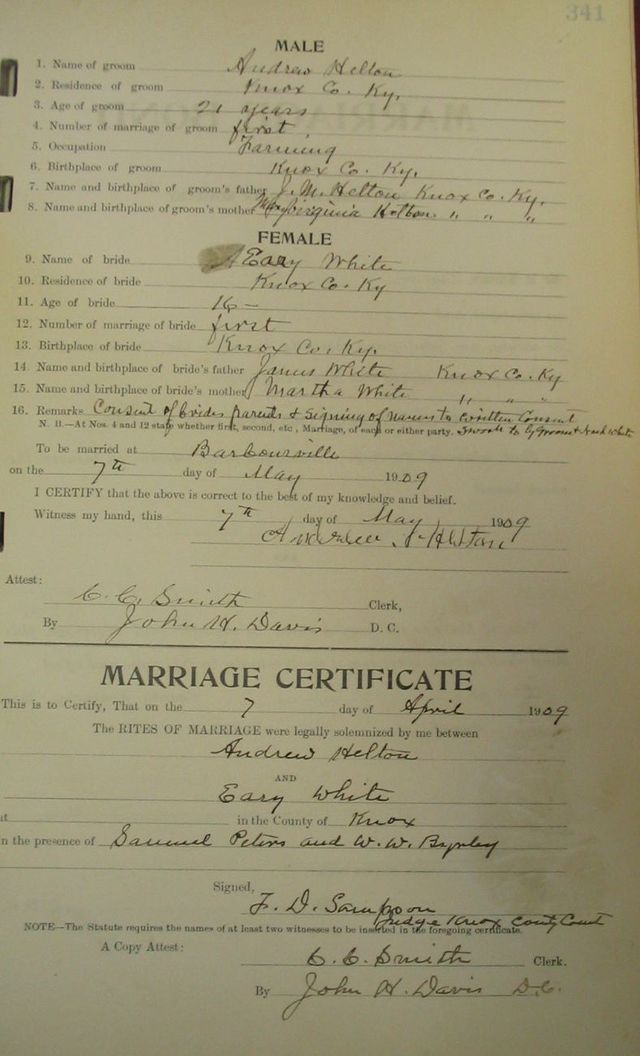 341
MALE
1. Name of groom Andrew Helton
2. Residence of groom Knox Co. Ky.
3. Age of groom 21 years
4. Number of marriage of groom first
5. Occupation Farming
6. Birthplace of groom Knox Co. Ky.
7. Name and birthplace of groom's father J. M. Helton Knox Co. Ky.
8. Name and birthplace of groom's mother Virginia Helton " " "
FEMALE
9. Name of bride Eary White
10. Residence of bride Knox Co. Ky
11. Age of bride 16 –
12. Number of marriage of bride first
13. Birthplace of bride Knox Co. Ky.
14. Name and birthplace of bride's father James White Knox Co. Ky
15. Name and birthplace of bride's mother Martha White " " "
16. Remarks Consent of brides parents & signing of names to written Consent
N. B.—At Nos. 4 and 12 state whether first, second, etc., Marriage, of each or either party. Sworn to by Groom & White
To be married at Barbourville
on the 7th day of May 1909
I CERTIFY that the above is correct to the best of my knowledge and belief.
Witness my hand, this 7th day of May, 1909
Andrew Helton
Attest:
C. C. Smith Clerk,
By John H. Davis D. C.
MARRIAGE CERTIFICATE
This is to Certify, That on the 7 day of April 1909
The RITES OF MARRIAGE were legally solemnized by me between
Andrew Helton
AND
Eary White
at in the County of Knox
n the presence of Samuel Peters and W. W. Byrley
Signed,
F. D. Sampson
Judge Knox County Court
NOTE—The Statute requires the names of at least two witnesses to be inserted in the foregoing certificate.
A Copy Attest:
C. C. Smith Clerk.
By John H. Davis D.C.